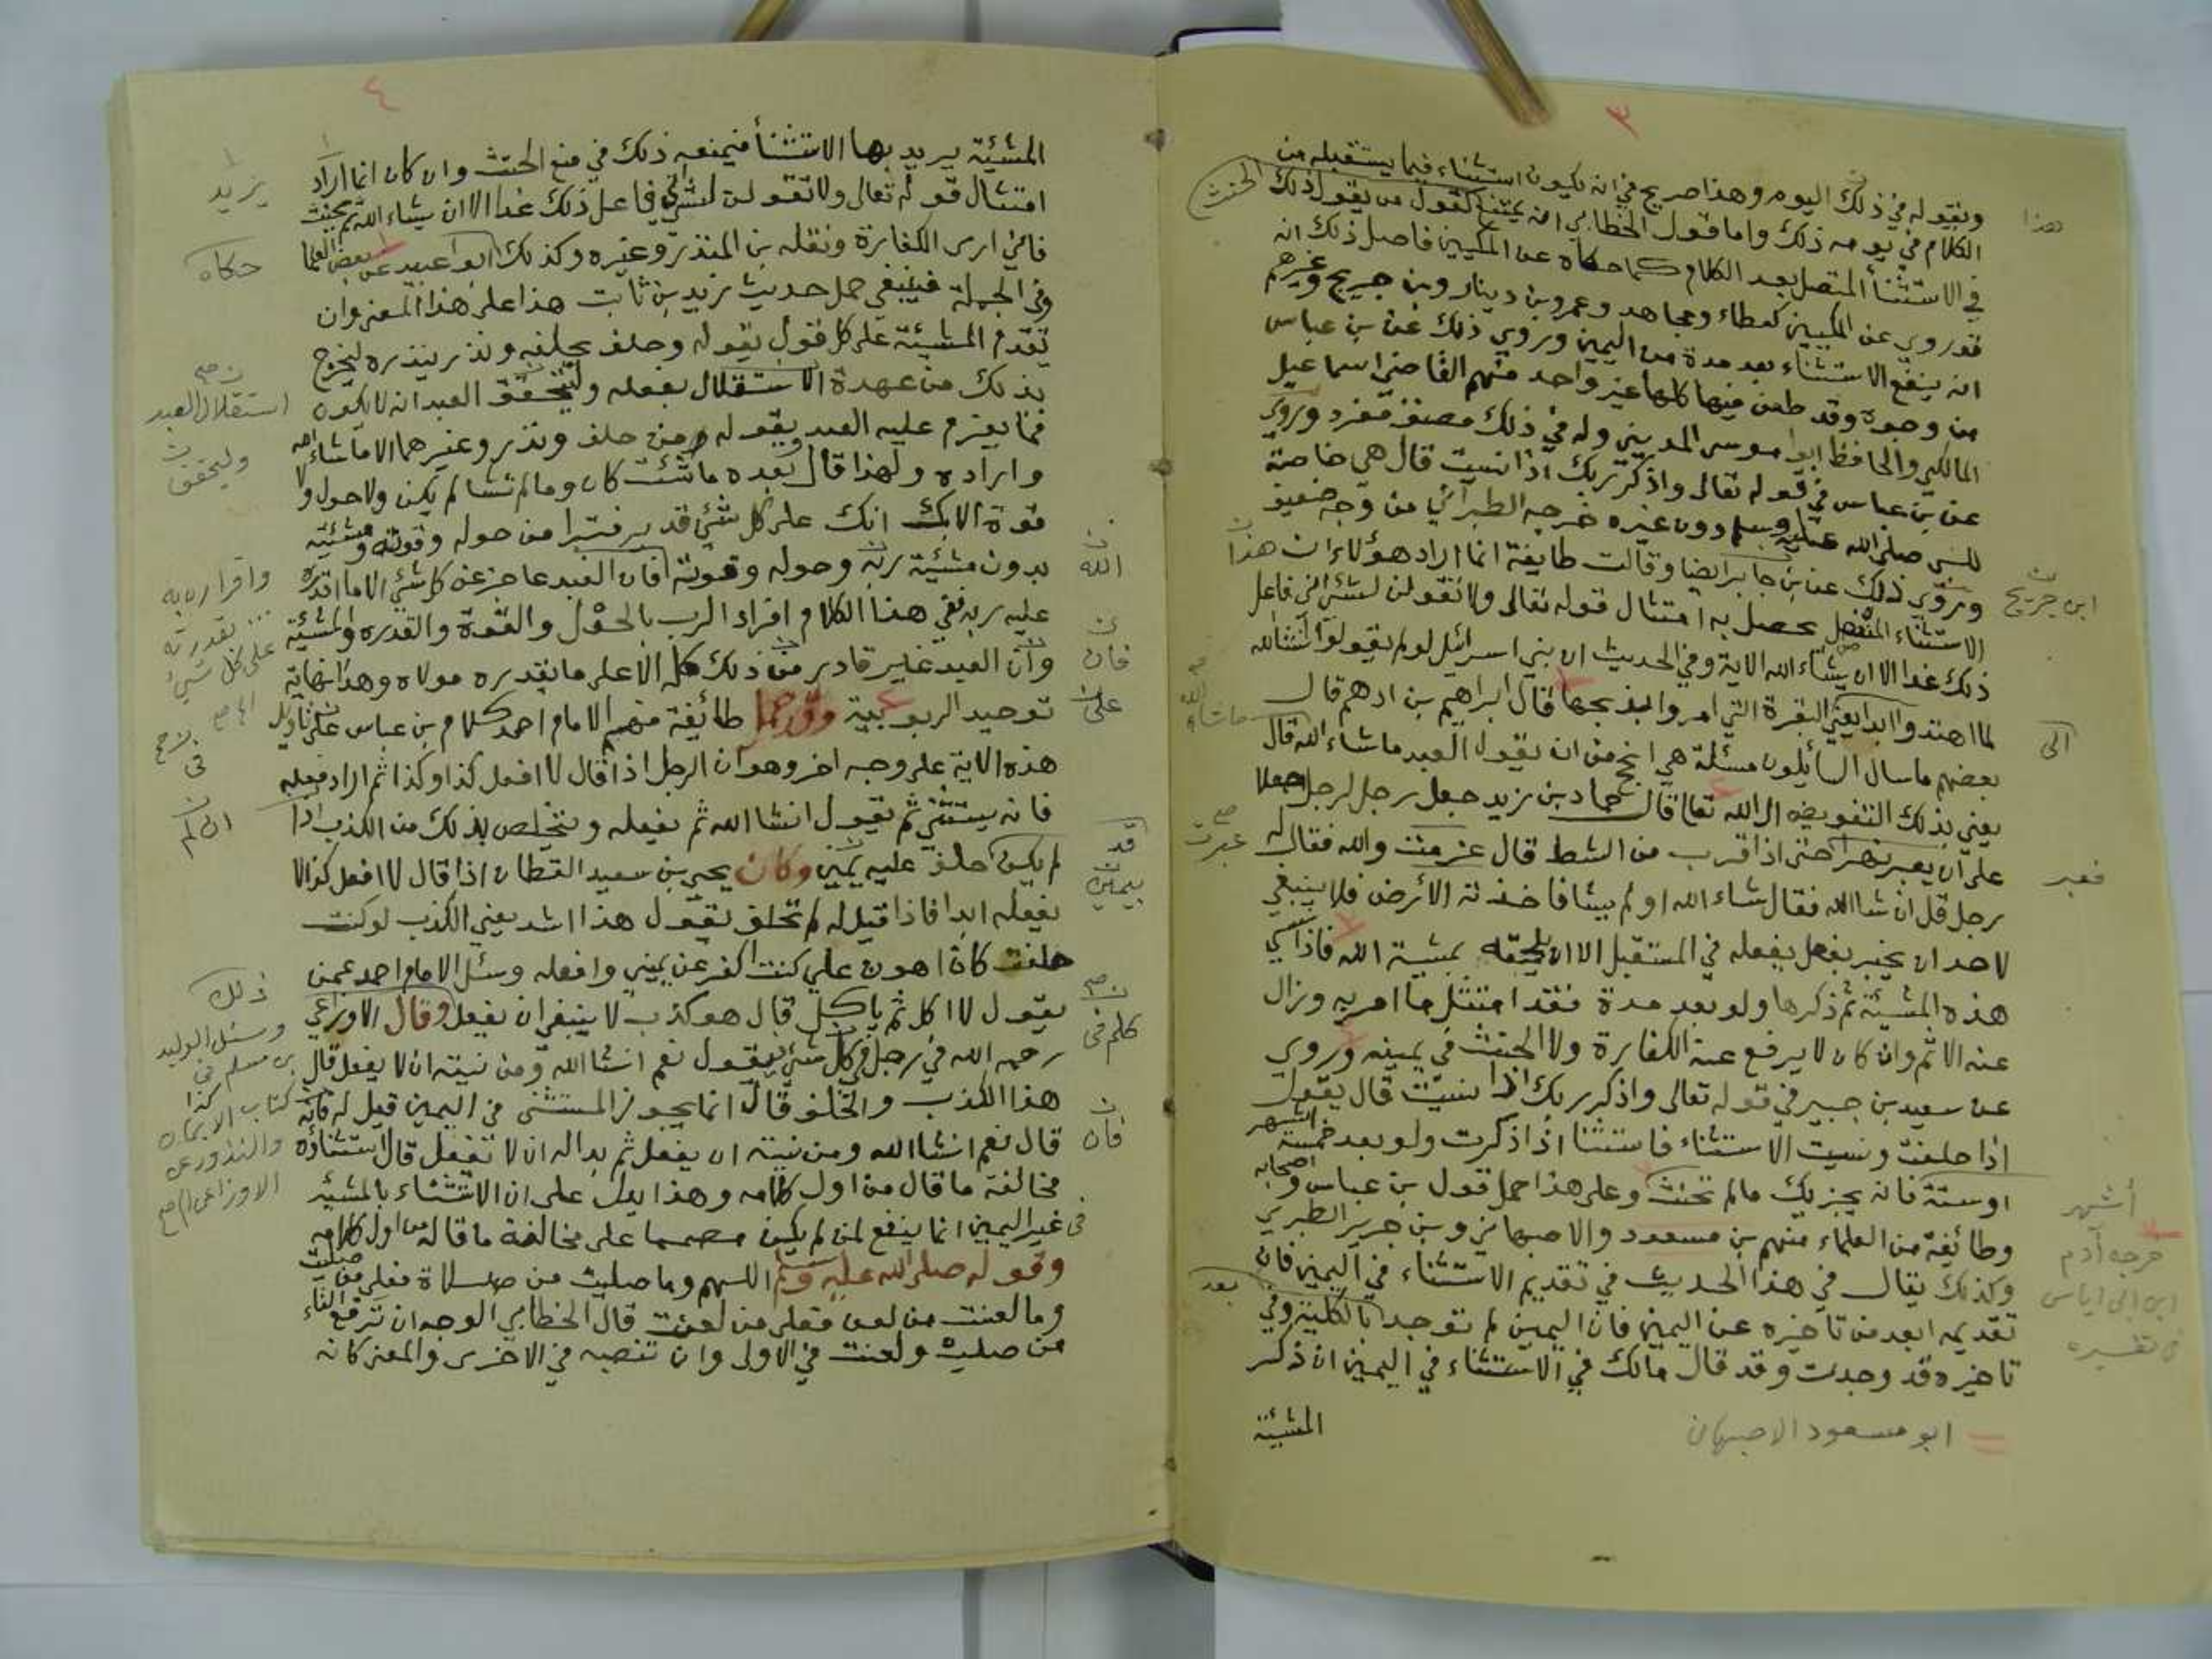 ٣
ويقوله في ذلك اليوم وهذا صريح في انه يكون استثناء فيما يستقبله من
الكلام في يومه ذلك واما قول الخطابي انه يمتنع كقول من يقول ذلك
في الاستثنأ المتصل بعد الكلام كما حكاه عن المكيين فاصل ذلك انه
قد روي عن المكيين كعطاء ومجاهد وعمرو بن دينار وبن جريج وغيرهم
انه ينفع الاستثناء بعد مدة من اليمين وروي ذلك عن بن عباس
من وجوه وقد طعن فيها كلها غير واحد منهم القاضي اسماعيل
المالكي والحافظ ابوا موسى المديني وله في ذلك مصنف مفرد وروي
عن بن عباس في قوله تعالى واذكر ربك اذا نسيت قال هي خاصة
للنبي صلى الله عليه وسلم دون غيره خرجه الطبراني من وجه ضعيف
وروي ذلك عن بن جابر ايضا وقالت طايفة انما اراد هؤلاء ان هذا
الاستثناء المنفصل يحصل به امتثال قوله تعالى ولا تقولن لشئ اني فاعل
ذلك غدا الا ان يشاء الله الاية وفي الحديث ان بني اسرائيل لو لم يقولوا انشالله
لما اهتدوا ابدا يعني البقرة التي امروا بذبحها قال ابراهيم بن ادهم قال
بعضهم ما سال السايلون مسئلة هي انجح من ان يقول العبد ما شاء الله قال
يعني بذلك التفويض الى الله تعا قال حماد بن زيد جعل رجل لرجل جعلا
على ان يعبر نهرا حتى اذا قرب من الشط قال عزمت والله فقال له
رجل قل ان شا الله فقال شاء الله او لم يشا فاخذته الأرض فلا ينبغي
لاحد ان يخبر بفعل يفعله في المستقبل الا ان يلحقه بمشيئة الله فاذا نسي
هذه المشيئة ثم ذكرها ولو بعد مدة فقد امتثل ما امر به وزال
عنه الاثم وان كان لا يرفع عنه الكفارة ولا الحنث في يمينه وروي
عن سعيد بن جبير في قوله تعالى واذكر ربك اذا نسيت قال يقول
اذا حلفت ونسيت الاستثناء فاستثنا اذا ذكرت ولو بعد خمسة اشهر
او ستة فانه يجزيك مالم تحنث وعلى هذا حمل قول بن عباس واصحابه
وطائفة من العلماء منهم بن مسعود والاصبهاني وبن جرير الطبري
وكذلك يقال في هذا الحديث في تقديم الاستثناء في اليمين فان
تقديمه ابعد من تاخيره عن اليمين فان اليمين لم توجد بالكلية وفي
تاخيره قد وجدت وقد قال مالك في الاستثناء في اليمين ان ذكر
المشيئة
ابو مسعود الاصبهان
هذا
الحنث
ابن جريج
ما شاء الله
الى
عبرت
فعبر
أشهر
خرجه آدم
ابن ابي اياس
في تفسيره
بعد
٤
المشيئة يريد بها الاستثنأ فيمنعه ذلك في منع الحنث وان كان انما اراد
امتثال قوله تعالى ولا تقولن لشئ اني فاعل ذلك غدا الا ان يشاء الله ثم يحنث
فاني ارى الكفارة ونقله بن المنذر وغيره وكذلك ابوا عبيد عن بعض العلما
وفي الجملة فينبغي حمل حديث زيد بن ثابت هذا على هذا المعنى وان
تقدم المشيئة على كل قول يقوله وحلف يحلفه ونذر ينذره ليخرج
بذلك من عهدة الاستقلال بفعله وليتحقق العبد انه لا يكون
مما يعزم عليه العبد ويقوله من حلف ونذر وغيرهما الا ما شاء الله
واراده ولهذا قال بعده ما شئت كان وما لم تشا لم يكن ولا حول ولا
قوة الا بك انك على كل شئ قدير فتبرا من حوله وقوته ومشيئته
بدون مشيئة ربه وحوله وقوته فان العبد عاجز عن كل شئ الا ما اقدره
عليه ربه ففي هذا الكلام افراد الرب بالحول والقوة والقدره والمشيئة
وان العبد غير قادر من ذلك كله الا على ما يقدره مولاه وهذا نهاية
توحيد الربوبية وقد حمل طائفة منهم الامام احمد كلام بن عباس على تاويل
هذه الاية على وجه اخر وهو ان الرجل اذا قال لا افعل كذا وكذا ثم اراد فعله
فانه يستثني ثم يقول انشا الله ثم يفعله ويتخلص بذلك من الكذب اذا
لم يكن حلف عليه يمين وكان يحيى بن سعيد القطان اذا قال لا افعل كذا لا
يفعله ابدا فاذا قيل له لم تحلف يقول هذا اشد يعني الكذب لو كنت
حلفت كان اهون علي كنت اكفر عن يميني وافعله وسئل الامام احمد عمن
يقول لا اكل ثم ياكل قال هو كذب لا ينبغي ان يفعل وقال الاوزاعي
رحمه الله في رجل في كل شئ يقول نعم انشا الله ومن نيته ان لا يفعل قال
هذا الكذب والخلف قال انما يجوز المستثنى في اليمين قيل له فانه
قال نعم انشا الله ومن نيته ان يفعل ثم بدا له ان لا تفعل قال استثناؤه
مخالفة ما قال من اول كلامه وهذا يدل على ان الاستثناء بالمشيئة
في غير اليمين انما ينفع لمن لم يكن مصمما على مخالفة ما قاله من اول كلامه
وقوله صلى الله عليه وسلم اللهم وما صليت من صلاة فعلى من صليت
وما لعنت من لعن فعلى من لعنت قال الخطابي الوجه ان ترفع التاء
من صليت ولعنت في الاولى وان تنصبه في الاخرى والمعنى كانه
يزيد
حكاه
استقلال العبد
وليتحقق
الله
واقراره به
بقدرته
على كل شيء
فان
على
في
ان لم
قد
بيمين
ذلك
وسئل الوليد
بن مسلم في
كتاب الايمان
والنذور عن
الاوزاعي
كلم في
فان